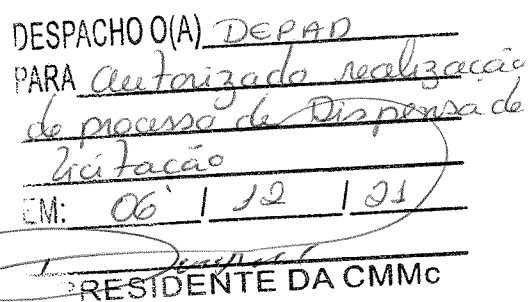 DESPACHO O(A) DEPAD
PARA autorizado realização
de processo de Dispensa de
licitação
EM: 06 / 12 / 21
PRESIDENTE DA CMMc